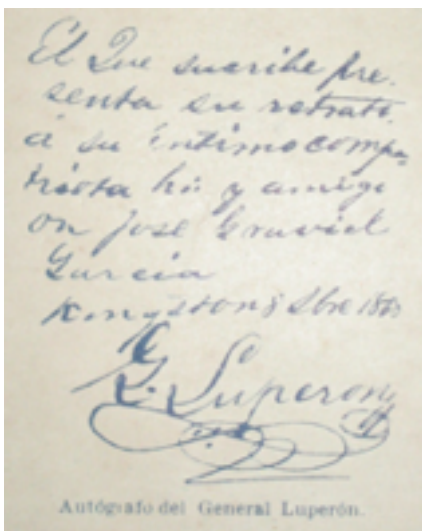 El Que suscribe pre.
senta su retrato
á su íntimo compa
triota h: y amigo
on José Graviel
Garcia
Kingston 8bre
G. Luperon
Autógrafo del General Luperón.